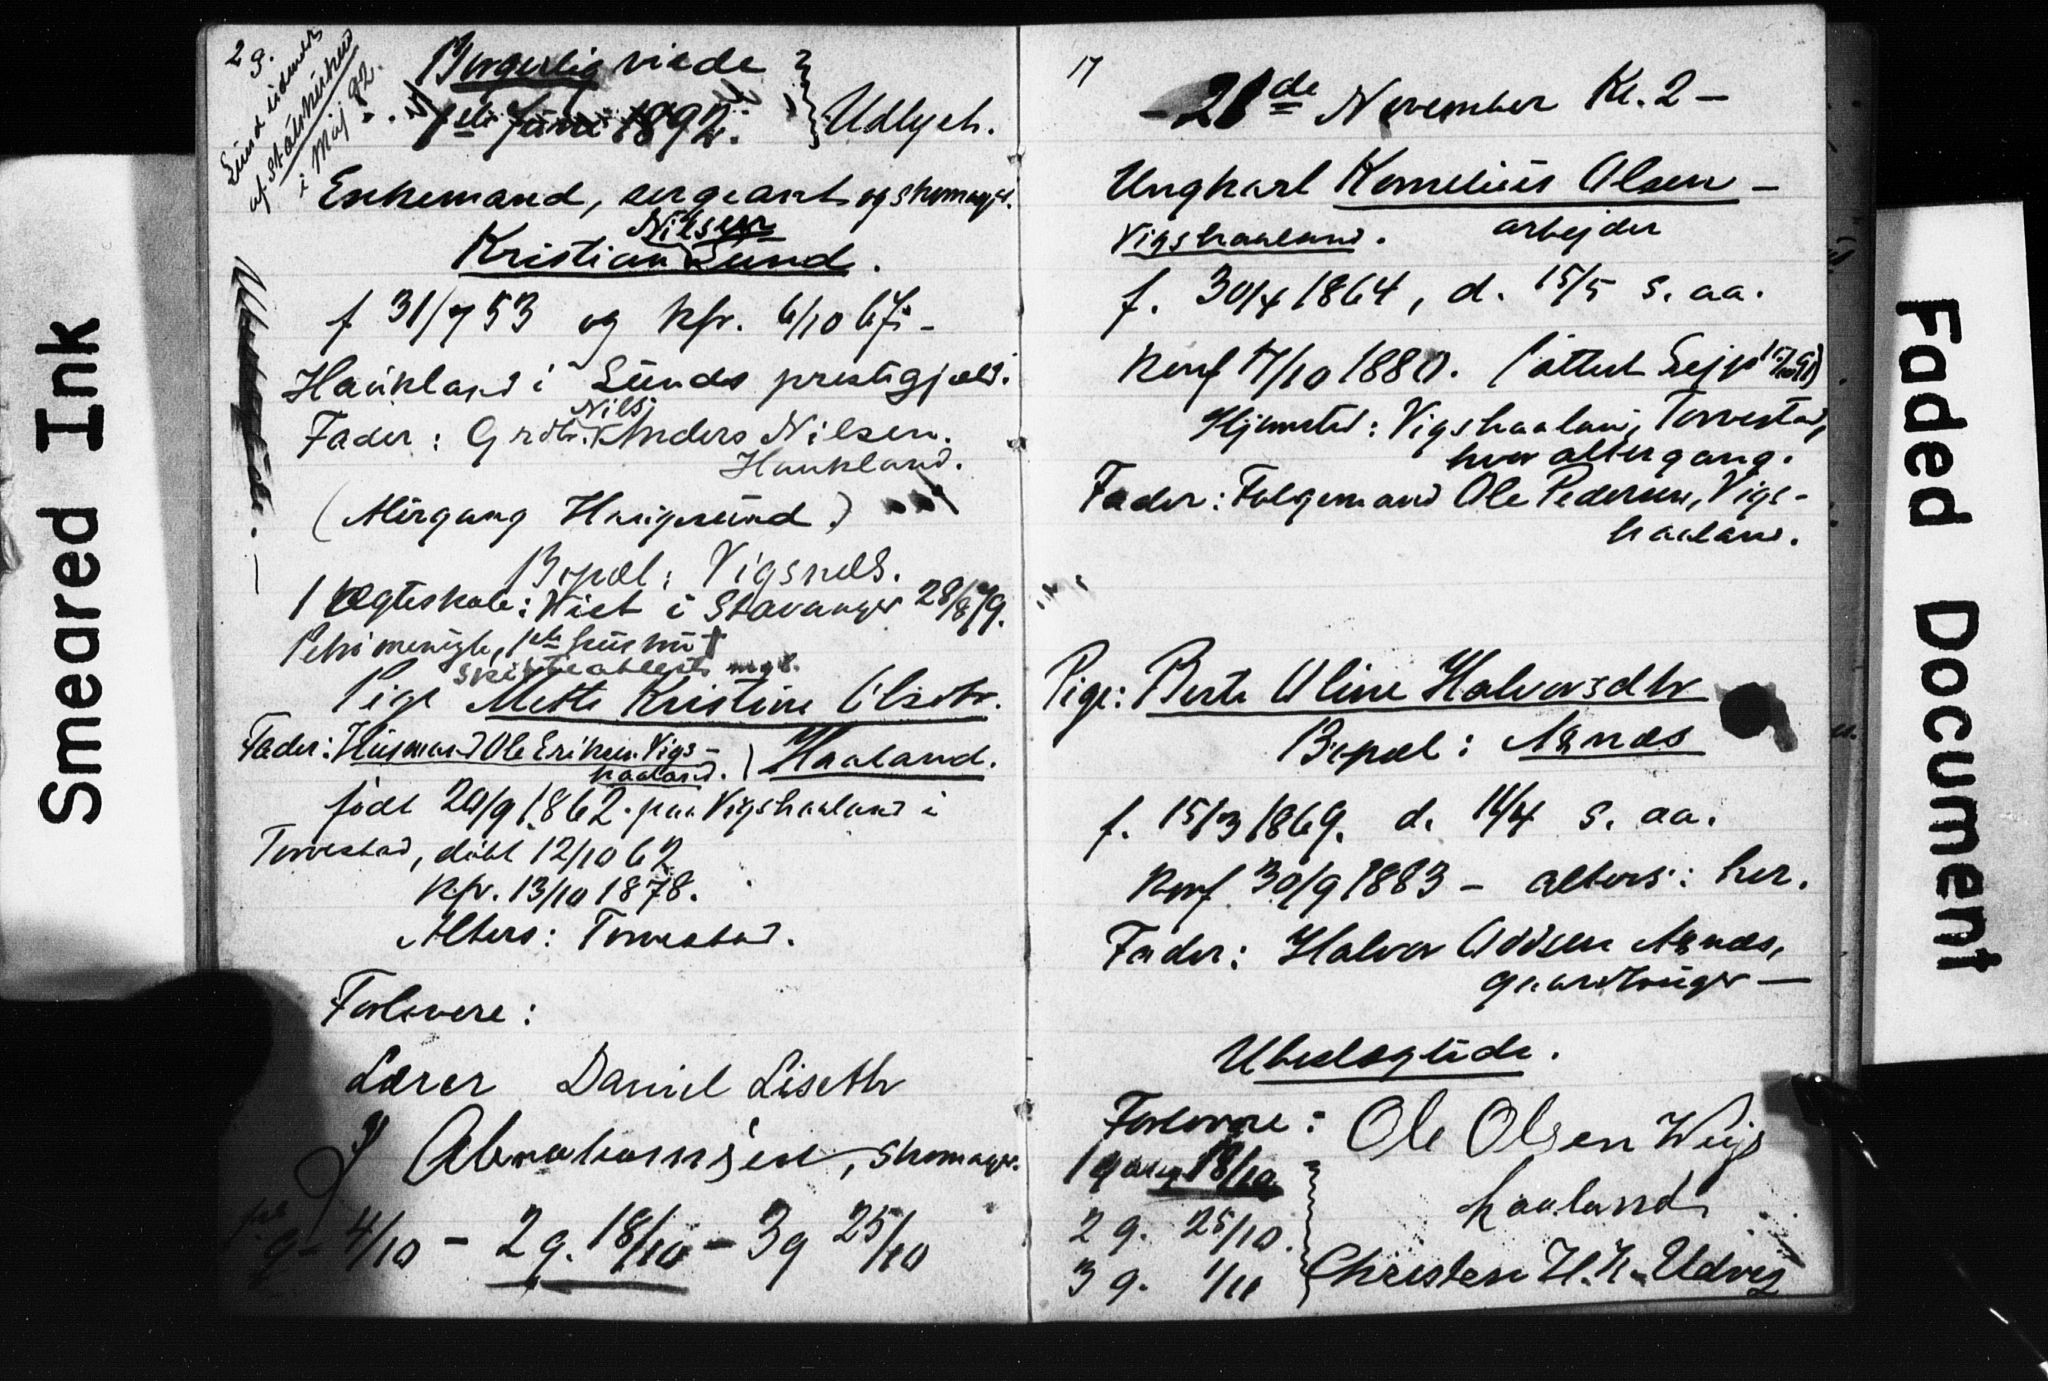 Smeared Ink
2
af statskirken
i Maj 92.
Borgerlig viede
1ste Juni 1892.
Udlyst.
Enkemand, sergeant og skomager.
Nilsen
Kristian Lund.
f 31/7 53 og kfr. 6/10 67 i
Haukland i Lunds prestegjæld.
Fader: Grdbr. Anders Nilsen.
Haukland.
(Altergang Haugesund)
Bopæl: Vigsnes.
1 Ægteskab: Viet i Stavanger 28/8 79.
Petri menighed, 1ste hustru †
skifteattest
Pige Mette Kristine Olsdtr.
Fader: Husmand Ole Eriksen Vigs-
haaland.
Haaland.
født 20/9 1862 paa Vigshaaland i
Torvestad, døbt 12/10 62
Kfr. 13/10 1878.
Alters: Torvestad.
Forlovere:
Lærer Daniel Liseth
Abrahamsen, skomager.
g 4/10 - 2 g. 18/10 - 3 g 25/10
17
- 21de November Kl. 2 -
Ungkarl Kornelius Olsen -
Vigshaaland. arbejder
f. 30/4 1864, d. 15/5 s. aa.
Konf 17/10 1880. (attest
Hjemsted: Vigshaaland, Torvestad,
hvor altergang.
Fader: Følgemand Ole Pedersen, Vigs-
haaland.
Pige: Berte Oline Halvorsdtr
Bopæl: Aknæs
f. 15/3 1869. d. 14/4 s. aa.
Konf 30/9 1883 - alters: her.
Fader: Halvor Oddsen Aknæs,
gaardbruger -
Ubeslægtede.
Forlovere: Ole Olsen Wigs
haaland
1 gang 18/10
2 g. 25/10.
3 g. 1/11
Christen H. Udvig
Faded Document